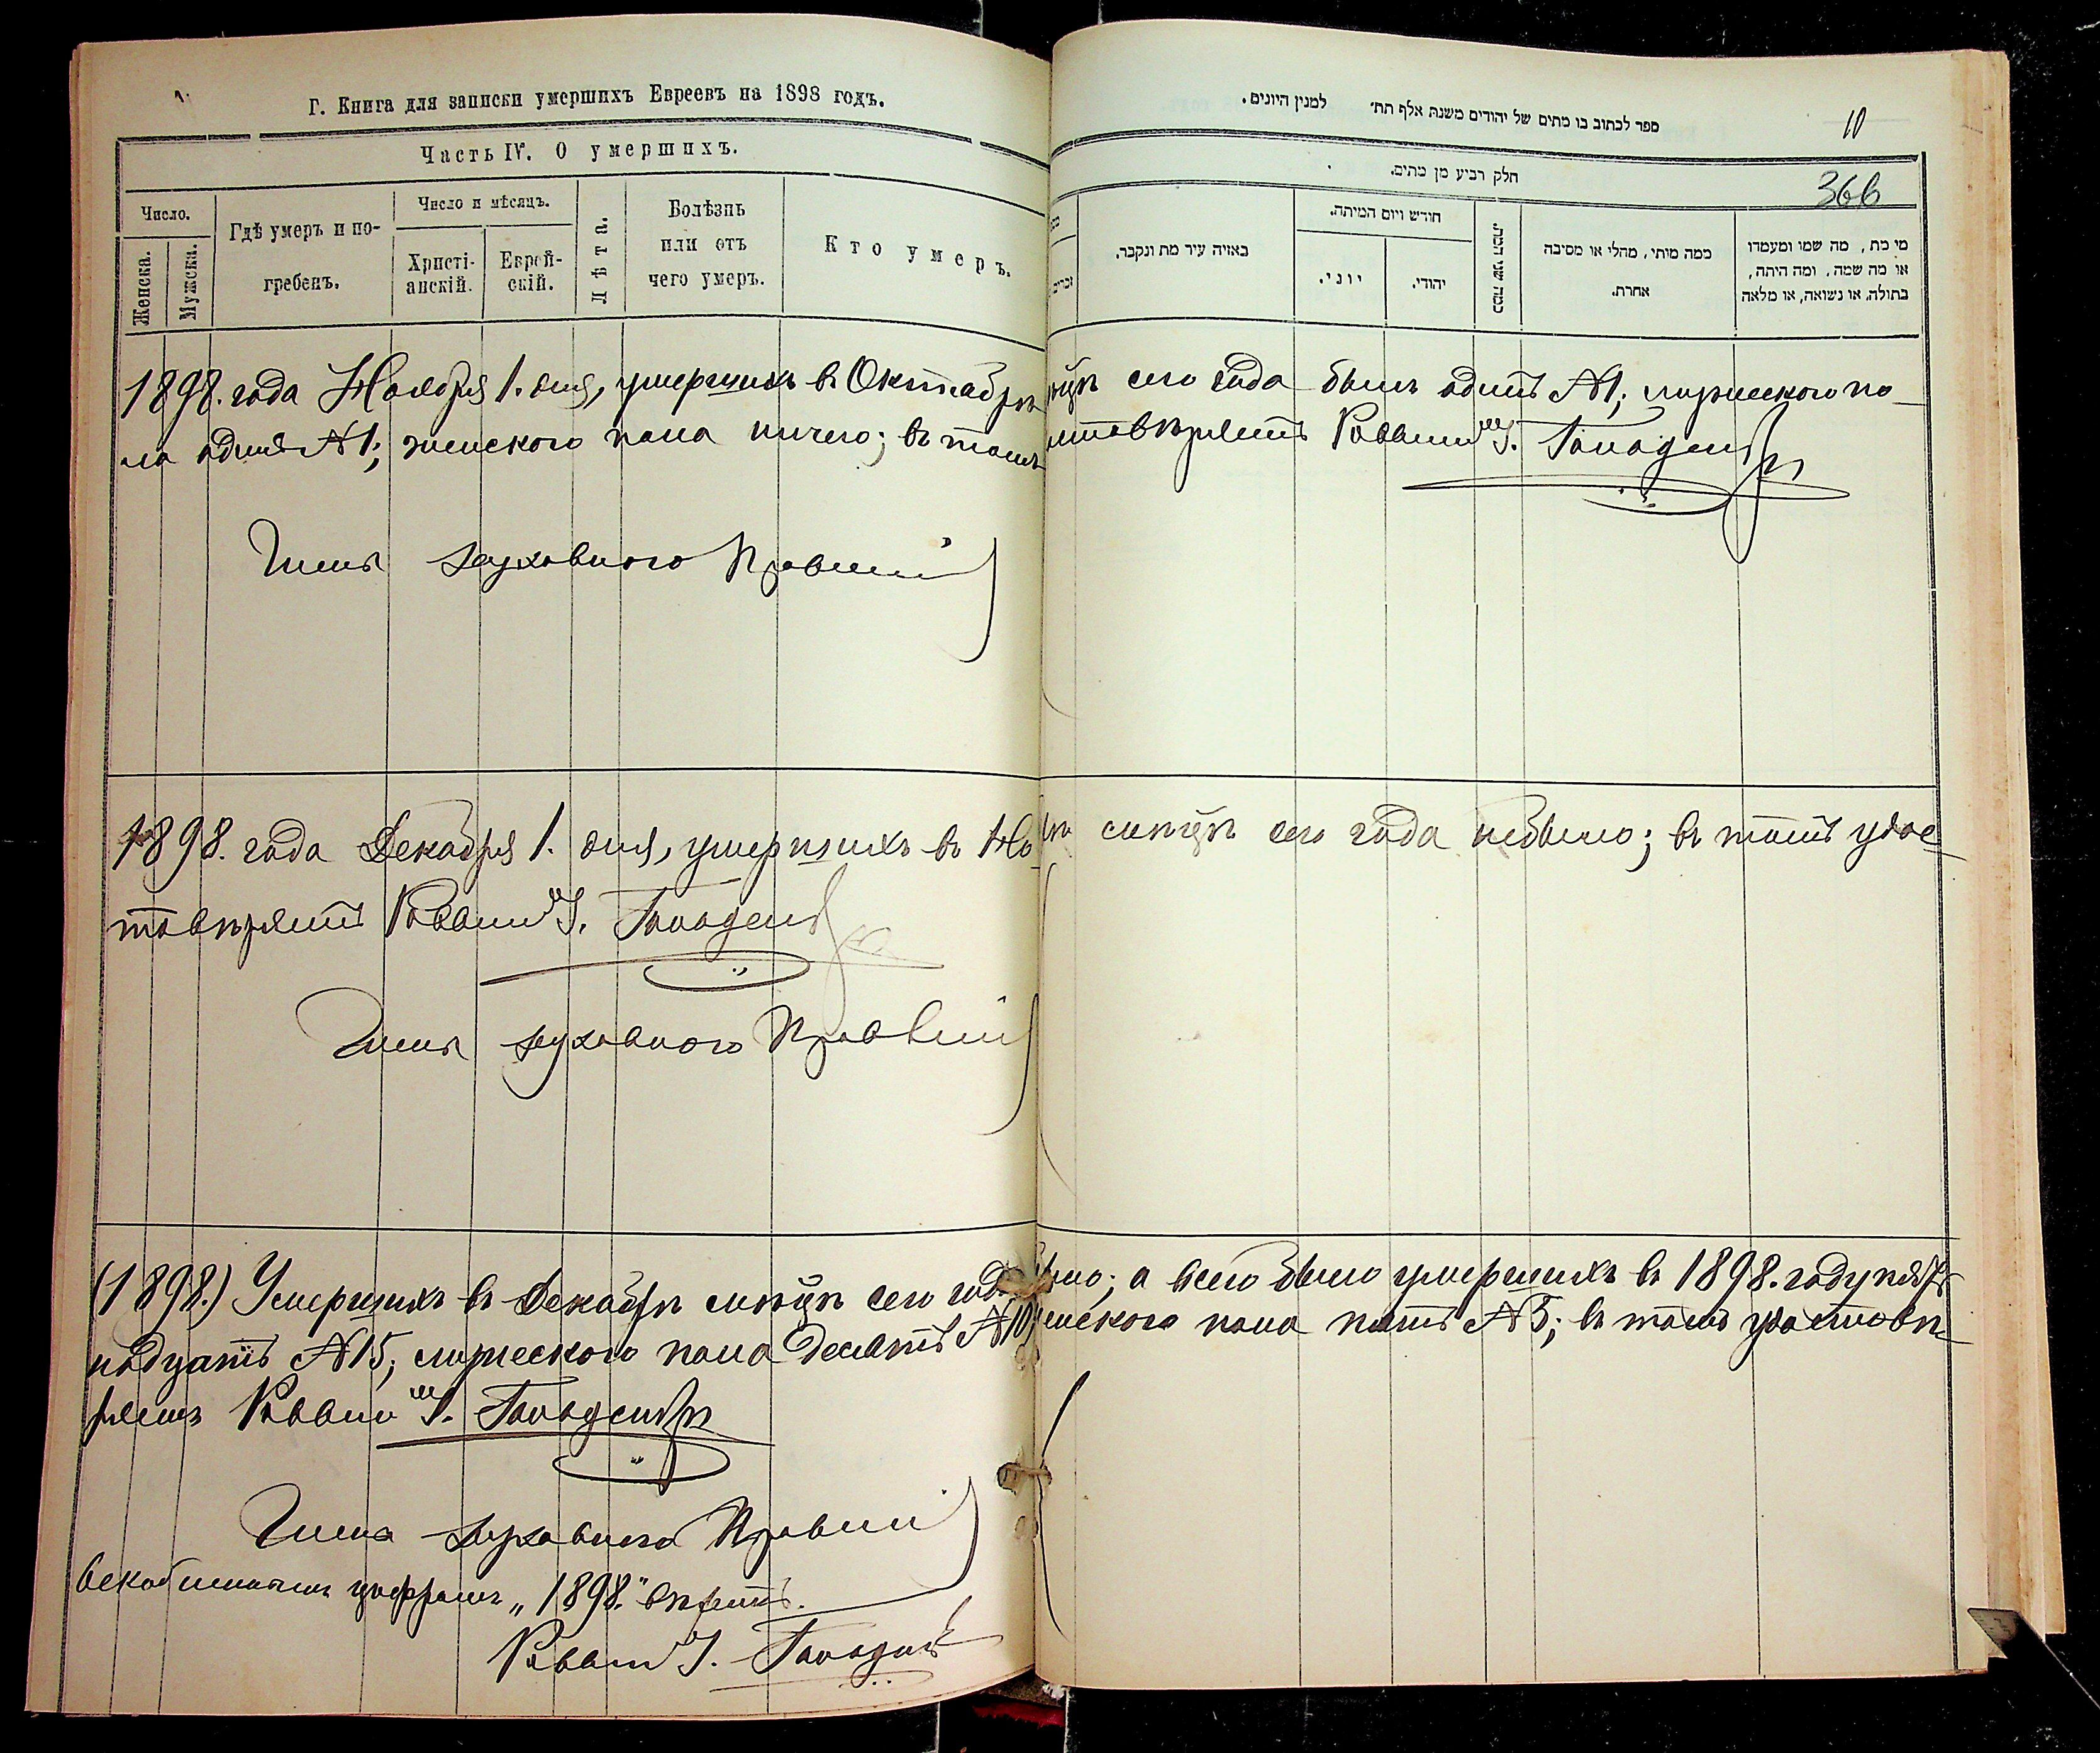 Г. Книга для записки умершихъ Евреевъ на 1898 годъ.
Часть IV. О умершихъ.
Число.
Женска.
Мужска.
Гдѣ умеръ и по-
гребенъ.
Число и мѣсяцъ.
Христі-
анскій.
Еврей-
скій.
Лѣта.
Болѣзнь
или отъ
чего умеръ.
Кто умеръ.
ספר לכתוב בו מתים של יהודים משנת אלף תת׳ למנין היונים.
10
חלק רביע מן מתים.
366
באיזה עיר מת ונקבר.
חודש ויום המיתה.
יוני.
יהודי.
כמה שני המת.
ממה מיתי, מהלי או מסיבה
אחרת.
מי מת, מה שמו ומעמדו
או מה שמה, ומה היתה,
בתולה, או נשואה, או מלאה
1898. года Ноября 1. дня, умершихъ въ Октябрѣ мѣсяцѣ сего года былъ одинъ №1; мужескаго по-
ла одинъ №1; женскаго пола ничего; въ томъ удостовѣряетъ Раввинъ
Членъ духовнаго Правленія
1898. года Декабря 1. дня, умершихъ въ Но мѣсяцѣ сего года небыло; въ томъ удос-
товѣряетъ Раввинъ
Членъ духовнаго Правленія
(1898.) Умершихъ въ Декабрѣ мѣсяцѣ сего года небыло; а всего было умершихъ въ 1898. году пят-
надцать №15; мужескаго пола десять №10; женскаго пола пять №5; въ томъ удостовѣ-
ряетъ Раввинъ
Членъ духовнаго Правленія
цифрамъ „1898." вѣрить.
Раввинъ